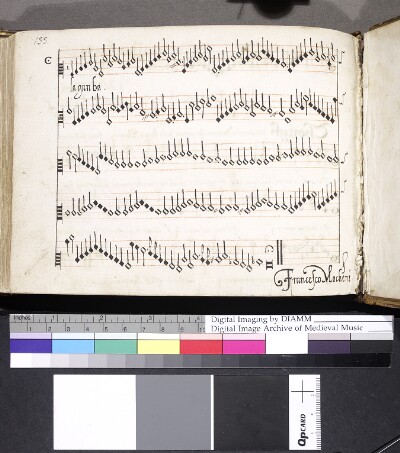 155
la gamba
Francesco
Inches 1 2 3
Digital Imaging by DIAMM
Digital Image Archive of Medieval Music
QpCARD